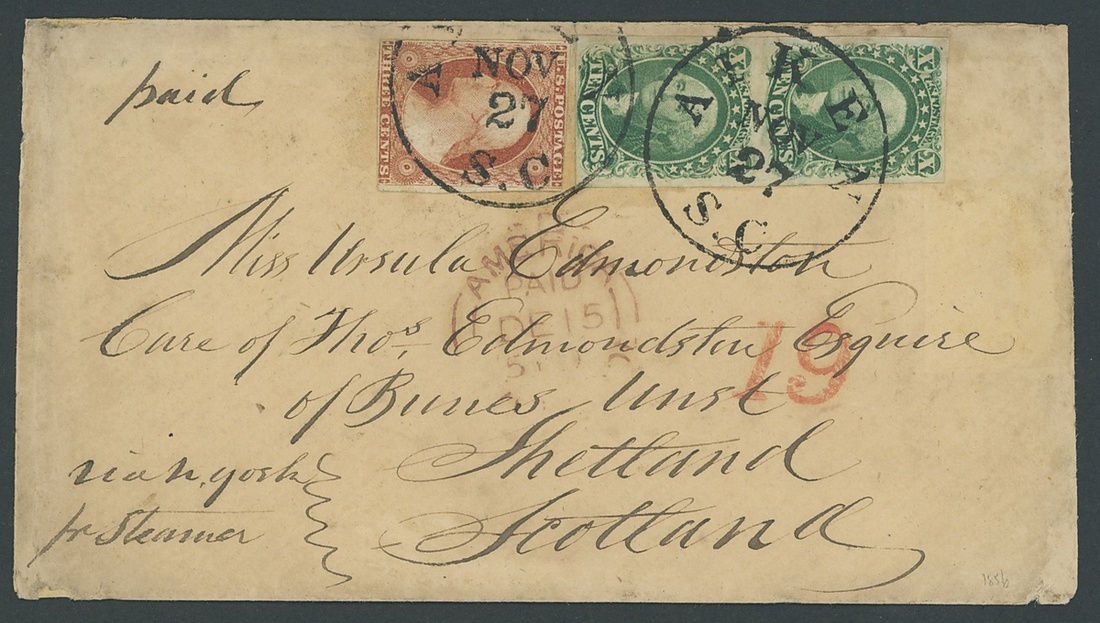 paid
U.S. POSTAGE
THREE CENTS
NOV
27
S.C
TEN CENTS
AIKEN
NOV
27
S.C
TEN CENTS
AMERICA
PAID
DE 15
19
Miss Ursula Edmondston
Care of Thos. Edmondston Esquire
of Buness Unst
Shetland
Scotland
via N. York
pr Steamer
1856